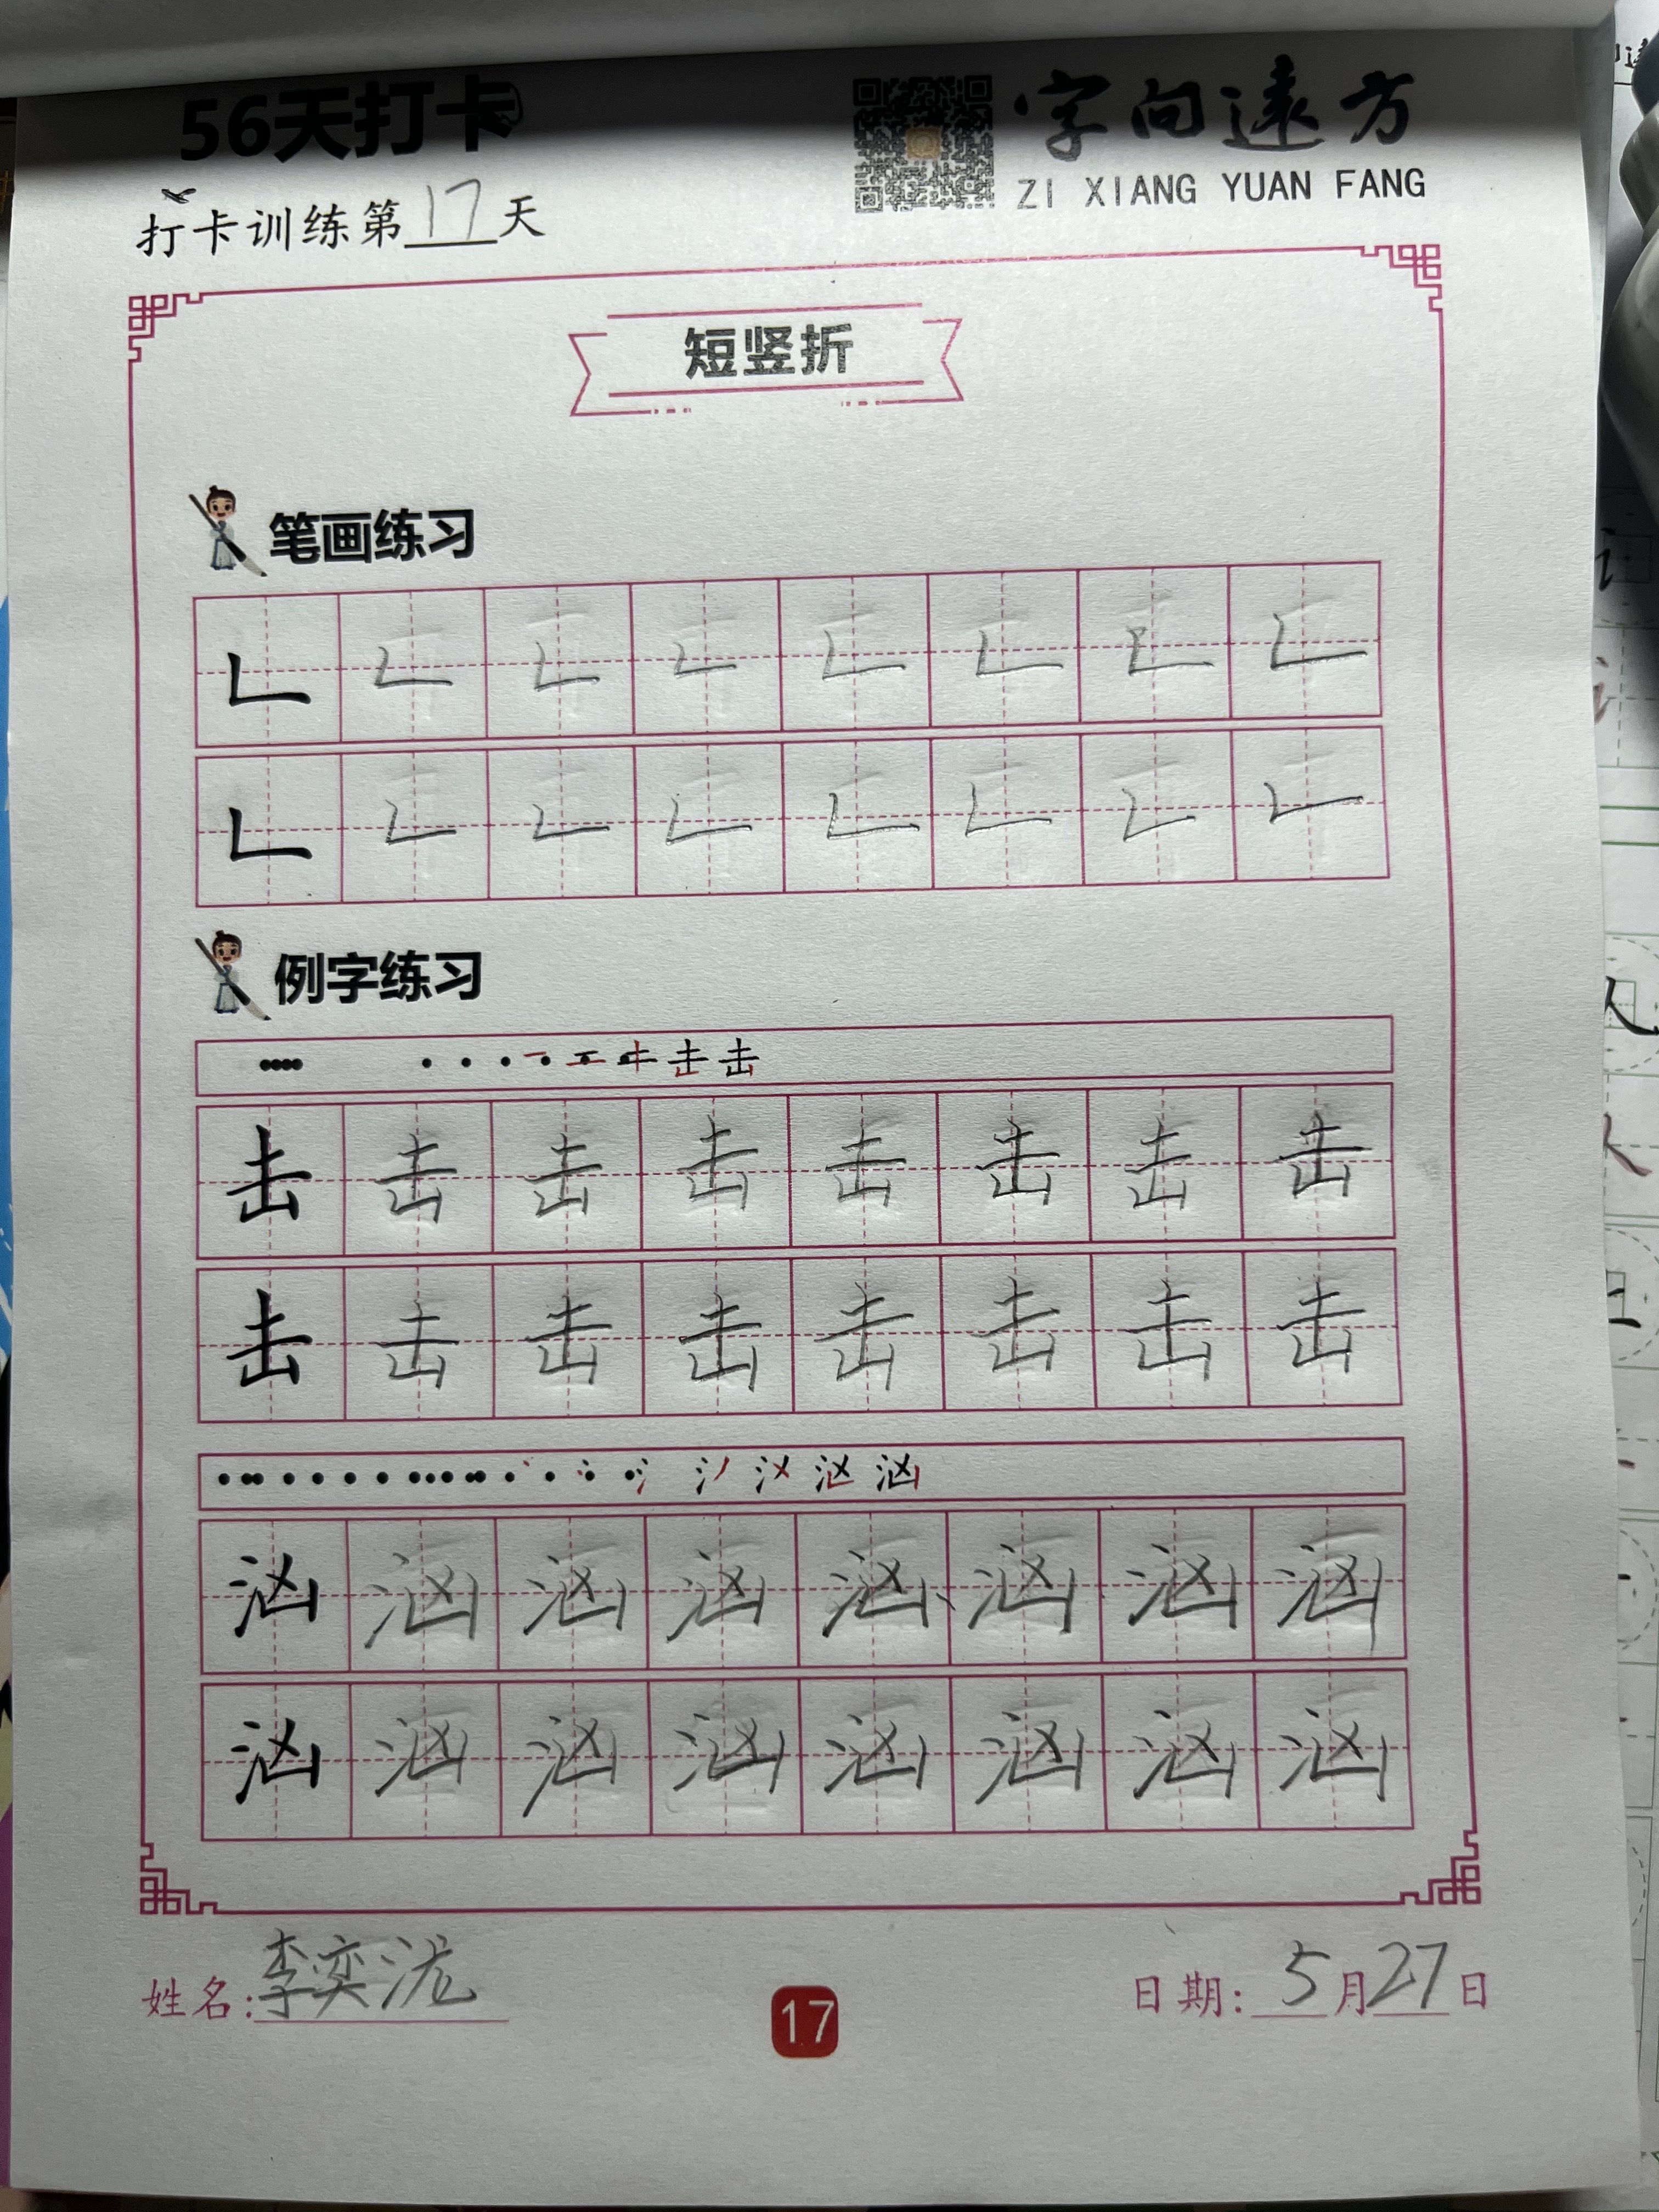 56天打卡
字向遠方
ZI XIANG YUAN FANG
打卡训练第17天
短竖折
笔画练习
𠃊 𠃊 𠃊 𠃊 𠃊 𠃊 𠃊 𠃊
𠃊 𠃊 𠃊 𠃊 𠃊 𠃊 𠃊 𠃊
例字练习
击 击 击 击 击 击 击 击
击 击 击 击 击 击 击 击
汹 汹 汹 汹 汹 汹 汹 汹
汹 汹 汹 汹 汹 汹 汹 汹
姓名:李奕泷
17
日期: 5月27日